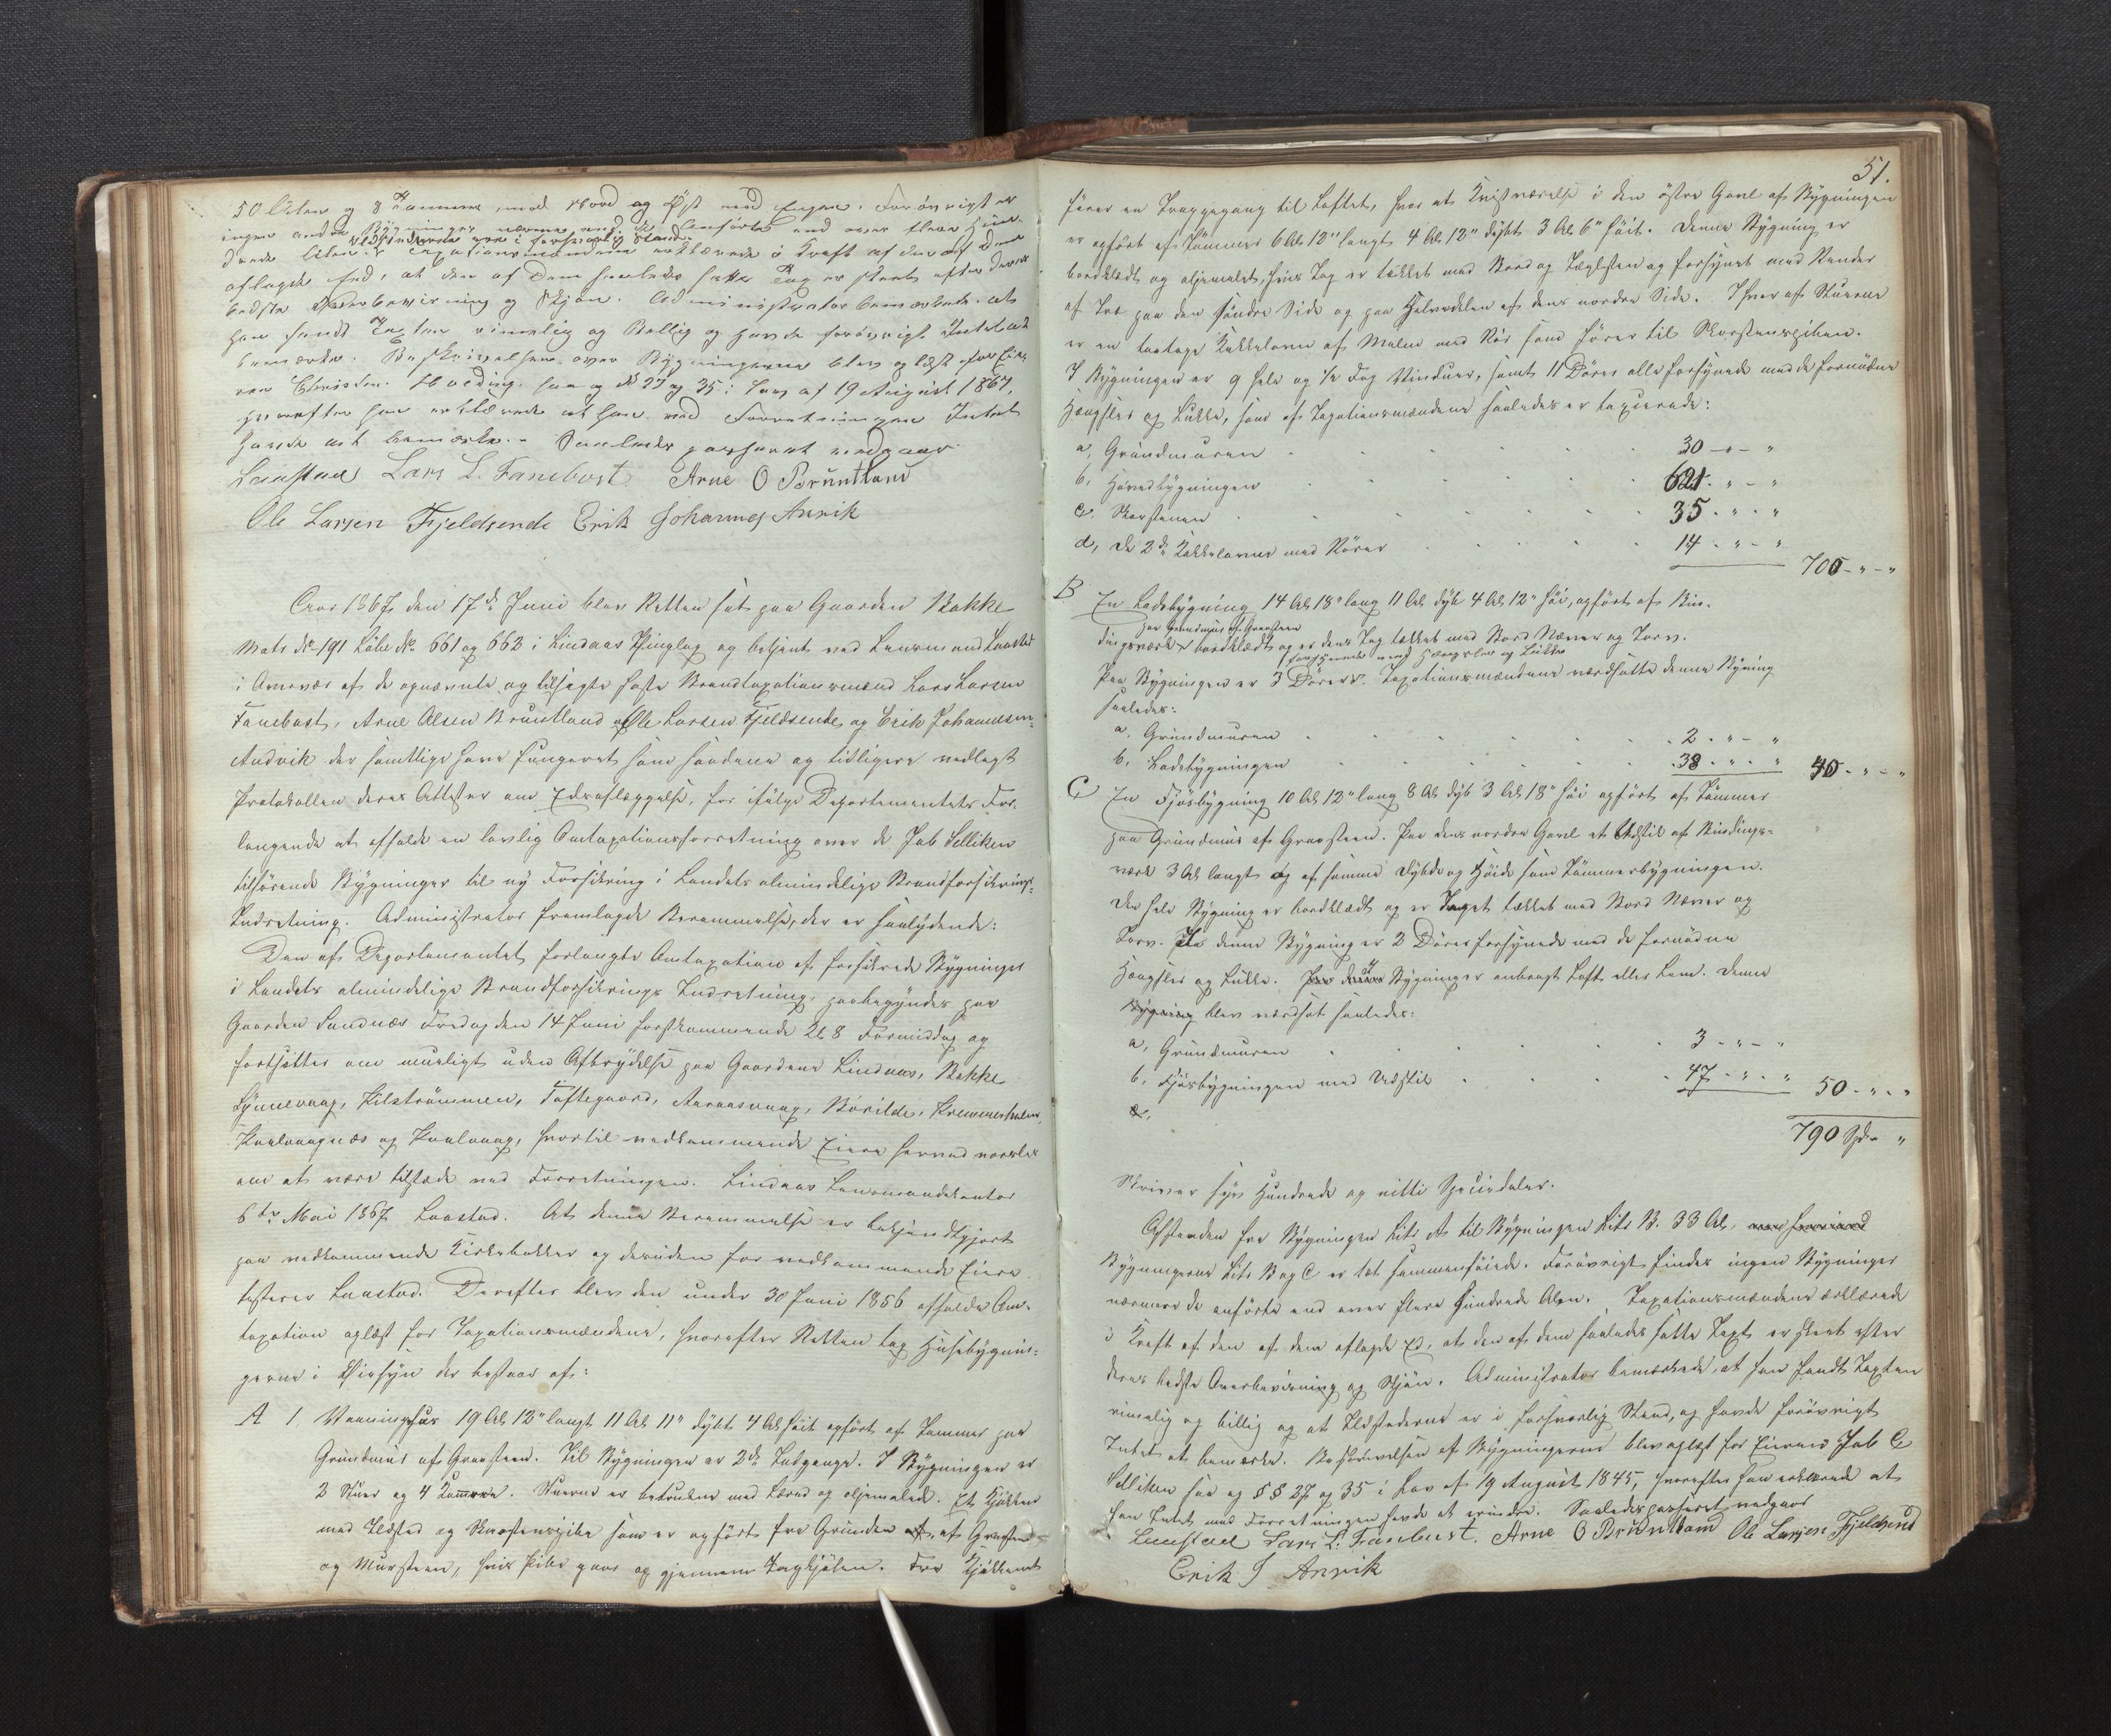 50 Alen og 8 Kammere mod Nord og Øst ved Engen. Forøvrigt er
ingen andre Bygninger nærmere end de anførte end over flere Hun-
Ildstederne ere i forsvarlig Stand.
drede Alen. Taxationsmændene erklærede i Kraft af den af dem
aflagde Eed, at den af dem saaledes satte Taxt er skeet efter deres
bedste Overbeviisning og Skjøn. Administrator bemærkede at
han fandt Taxten rimelig og billig og havde forøvrigt Intet at
bemærke. Beskrivelsen over Bygningerne blev oplæst for Eie-
ren Christen saa og §§ 27 og 35 i Lov af 19 August 1867,
hvorefter han erklærede at han ved Forretningen Intet
havde at bemærke. - Saaledes passeret vedgaar
Laastad Lars L. Fanebost Arne O Bruntland
Ole Larsen Fjeldsende Erik Johannes Anvik
Aar 1867 den 17de Juni blev Retten sat paa Gaarden Bakke
Matr № 191 Løbe № 661 og 662 i Lindaas Thinglag og betjent ved Lensmand Laastad
i Overvær af de opnævnte og tilsagte faste Brandtaxationsmænd Lars Larsen
Fanebost, Arne Olsen Bruntland Ole Larsen Fjeldsende og Erik Johannesen
Andvik der samtlige have fungeret som saadanne og tidligere vedlagt
Protokollen deres Attester om Edsaflæggelse, for ifølge Departementets For-
langende at afholde en lovlig Omtaxationsforretning over de Jab Selliken
tilhørende Bygninger til ny Forsikring i Landets almindelige Brandforsikrings-
Indretning. Administrator fremlagde Berammelse, der er saalydende:
Den af Departementet forlangte Omtaxation af forsikrede Bygninger
i Landets almindelige Brandforsikrings Indretning, paabegyndes paa
Gaarden Sandnæs Fredag den 14 Juni førstkommende Kl 8 Formiddag og
fortsættes om muligt uden Afbrydelse paa Gaardene Lindaas, Bakke
Lynnevaag, Kilstrømmen, Toftegaard, Aaraasvaag, Børilde, Kremmerholmen,
Kaalvaagnæs og Kaalvaag, hvortil vedkommende Eiere herved varsles
om at være tilstede ved Forretningen. Lindaas Lensmandskontor
6te Mai 1867 Laastad. At denne Berammelse er bekjendtgjort
paa vedkommende Kirkebakker og desuden for vedkommende Eiere
testerer Laastad. Derefter blev den under 30 Juni 1856 afholdte Om-
taxation oplæst for Taxationsmændene, hvorefter Retten tog Husebygnin-
gerne i Øiesyn der bestaar af:
A 1 Vaaningshus 19 Al 12" langt 11 Al 11" dybt 4 Al høit opført af Tømmer paa
Grundmur af Graasteen. Til Bygningen er 2de Indgange. I Bygningen er
2 Stuer og 4 Kammere. Stuerne er betrukne med Lærred og oljemalede. Et Kjøkken
med Ildsted og Skorstenspibe som er opført fra Grunden af Graasteen
og Mursteen, hvis Pibe gaar op gjennem Tagkjølen. Fra Kjøkkenet
51.
fører en Trappegang til Loftet, hvor et Kvistværelse i den østre Gavl af Bygningen
er opført af Tømmer 6 Al 12" langt 4 Al 12" dybt 3 Al 6" høit. Denne Bygning er
bordklædt og oljemalet, hvis Tag er tækket med Bord og Taglsten og forsynet med Render
af Træ paa den søndre Side og paa Halvdelen af dens nordre Side. I hver af Stuerne
er en toetages Kakkelovn af Malm med Rør som fører til Skorstenspiben.
I Bygningen er 9 hele og ½ Fag Vinduer, samt 11 Døre alle forsynede med de fornødne
Hængsler og Lukke, som af Taxationsmændene saaledes er taxerede:
a, Grundmuren 30 - " - "
b, Hovedbygningen 621 - " - "
c, Skorstenen 35 - " - "
d, De 2de Kakkelovne med Rører 14 - " - "
700 - " - "
B En Ladebygning 14 Al 18" lang 11 Al dyb 4 Al 12" høi, opført af Bin-
paa Grundmur af Graasteen
dingsværk bordklædt og er dens Tag tækket med Bord Næver og Torv.
forsynede med Hængsler og Lukke
Paa Bygningen er 3 Døre. Taxationsmændene værdsatte denne Bygning
saaledes:
a. Grundmuren 2 - " - "
b. Ladebygningen 38 - " - " 40 - " - "
C En Fjøsbygning 10 Al 12" lang 8 Al dyb 3 Al 18" høi opført af Tømmer
paa Grundmur af Graasteen. Paa dens nordre Gavl et Udskil af Bindings-
værk 3 Al langt og af samme Dybde og Høide som Tømmerbygningen.
Den hele Bygning er bordklædt og er Taget tækket med Bord Næver og
Torv. Til denne Bygning er 2 Døre forsynede med de fornødne
Hængsler og Lukke. Bygninger anbragt Loft eller Lem. Denne
Bygning blev værdsat saaledes:
a, Grundmuren 3 - " - "
b, Fjøsbygningen med Udskil 47 - " - " 50 - " - "
c,
790 Spd - "
Skriver syv Hundrede og nitti Speciedaler.
Afstanden fra Bygningen Litr A til Bygningen Litr B. 33 Al,
Bygningerne Litr B og C er tæt sammenføiede. Forøvrigt findes ingen Bygninger
nærmere de anførte end over flere Hundrede Alen. Taxationsmændene erklærede
i Kraft af den af dem aflagde Ed, at den af dem saaledes satte Taxt er skeet efter
deres bedste Overbevisning og Skjøn. Administrator bemærkede, at han fandt Taxten
rimelig og billig og at Ildstederne er i forsvarlig Stand, og havde forøvrigt
Intet at bemærke. Beskrivelsen af Bygningerne blev oplæst for Eieren Jab C
Selliken saa og §§ 27 og 35 i Lov af 19 August 1845, hvorefter han erklærede at
han Intet mod Forretningen havde at erindre. Saaledes passeret vedgaar
Laastad Lars L. Fanebust. Arne O Bruntland Ole Larsen Fjeldsend
Erik J Anvik